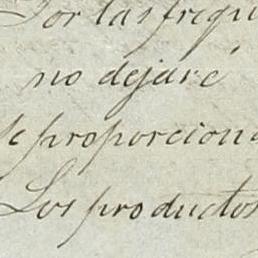 Por las frequ
no dejaré
se proporciona
Los productos